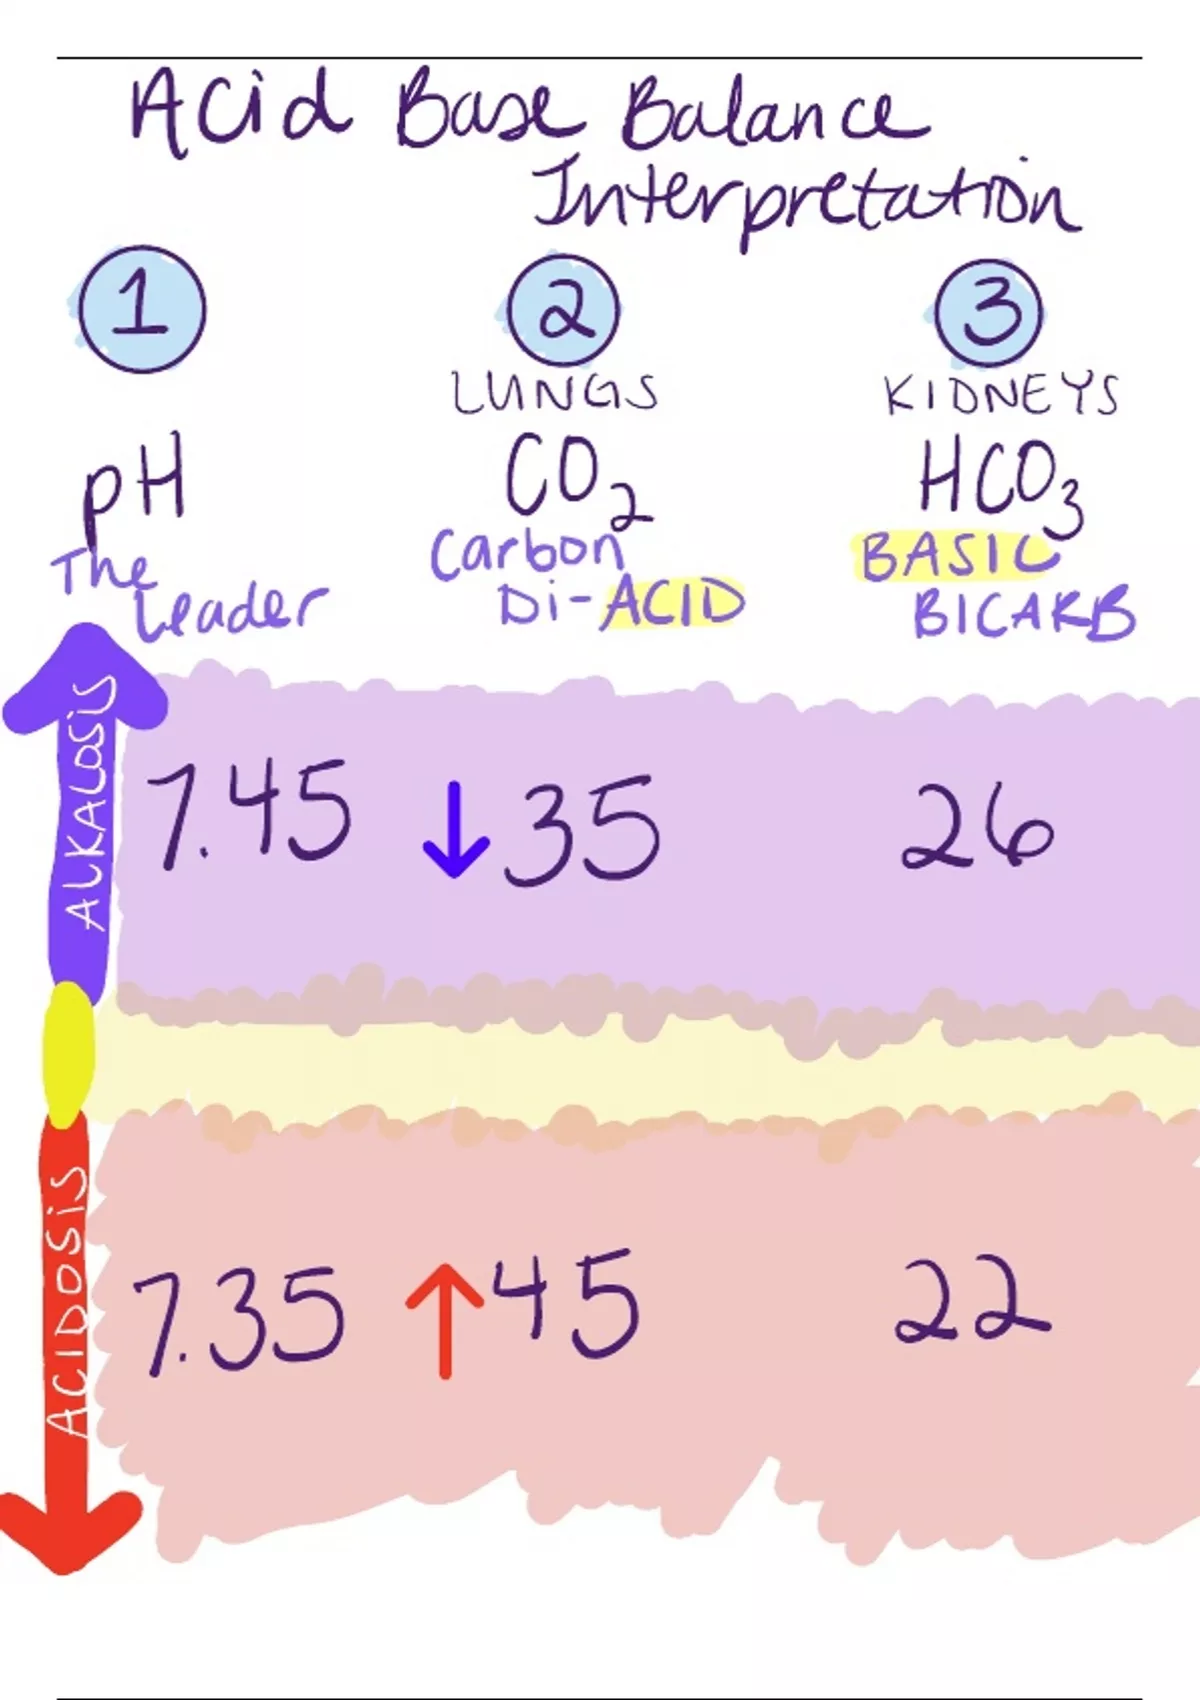 Acid Base Balance
Interpretation
1 2 3
LUNGS KIDNEYS
pH CO2 HCO3
The Leader
Carbon
Di-ACID
BASIC
BICARB
ALKALOSiS
7.45 ↓35 26
ACIDOSiS
7.35 ↑45 22